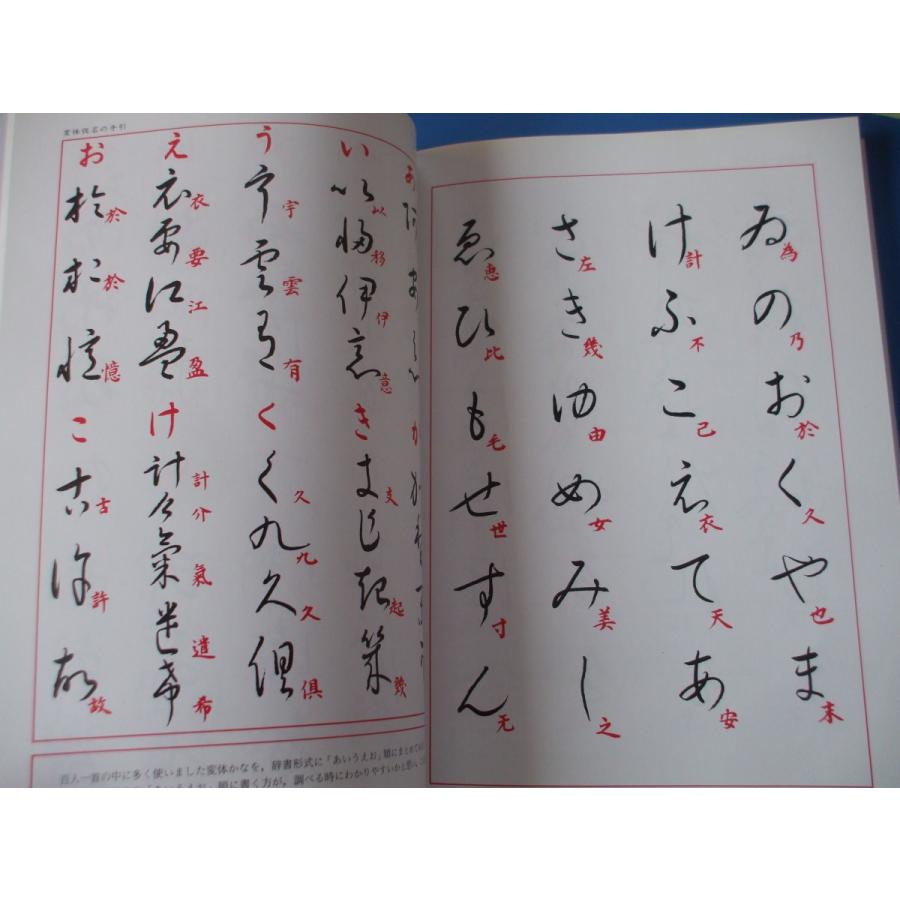 ゐ為の乃お於く久や也ま末
け計ふ不こ己え衣て天あ安
さ左き幾ゆ由め女み美し之
ゑ恵ひ比も毛せ世す寸ん无
変体仮名の手引
い以移伊意き支起幾
う宇雲有く久九久倶
え衣要江盈け計介氣遣希
お於於憶こ古許故
百人一首の中に多く使いました変体かなを，辞書形式に「あいうえお」順にまとめて
「あいうえお」順に書く方が，調べる時にわかりやすいかと思い